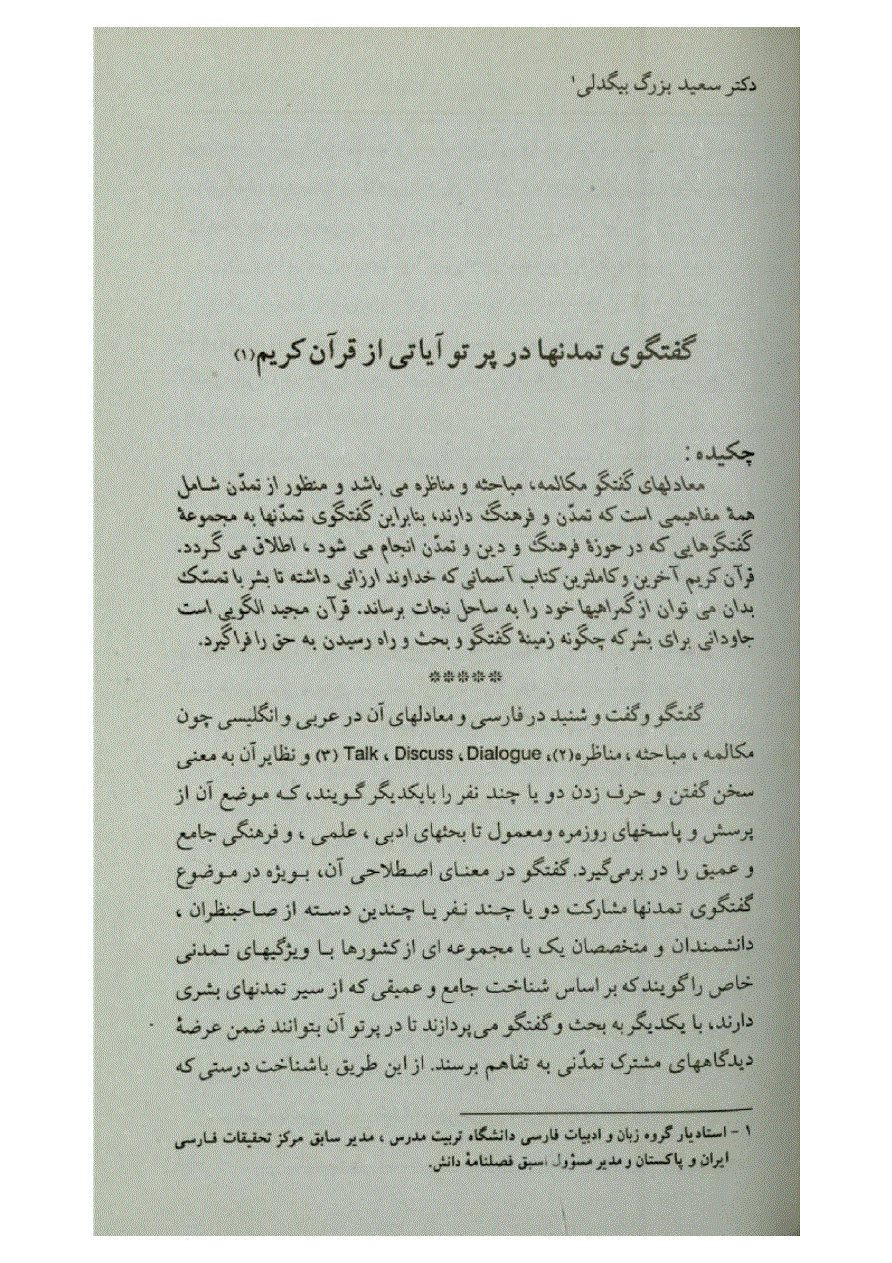 دکتر سعید بزرگ بیگدلی۱
گفتگوی تمدنها در پر تو آیاتی از قرآن کریم(۱)
چکیده :
معادلهای گفتگو مکالمه، مباحثه و مناظره می باشد و منظور از تمدّن شامل
همۀ مفاهیمی است که تمدّن و فرهنگ دارند، بنابراین گفتگوی تمدّنها به مجموعۀ
گفتگوهایی که در حوزۀ فرهنگ و دین و تمدّن انجام می شود ، اطلاق می گردد.
قرآن کریم آخرین و کاملترین کتاب آسمانی که خداوند ارزانی داشته تا بشر با تمسّک
بدان می توان از گمراهیها خود را به ساحل نجات برساند. قرآن مجید الگویی است
جاودانی برای بشر که چگونه زمینۀ گفتگو و بحث و راه رسیدن به حق را فراگیرد.
*****
گفتگو و گفت و شنید در فارسی و معادلهای آن در عربی و انگلیسی چون
مکالمه ، مباحثه ، مناظره(۲)، Talk ، Discuss ، Dialogue (۳) و نظایر آن به معنی
سخن گفتن و حرف زدن دو یا چند نفر را بایکدیگر گویند، که موضع آن از
پرسش و پاسخهای روزمره ومعمول تا بحثهای ادبی ، علمی ، و فرهنگی جامع
و عمیق را در برمی‌گیرد. گفتگو در معنای اصطلاحی آن، بویژه در موضوع
گفتگوی تمدنها مشارکت دو یا چند نفر یا چندین دسته از صاحبنظران ،
دانشمندان و متخصصان یک یا مجموعه ای از کشورها با ویژگیهای تمدنی
خاص را گویند که بر اساس شناخت جامع و عمیقی که از سیر تمدنهای بشری
دارند، با یکدیگر به بحث و گفتگو می‌پردازند تا در پرتو آن بتوانند ضمن عرضۀ
دیدگاههای مشترک تمدّنی به تفاهم برسند. از این طریق باشناخت درستی که
۱ - استادیار گروه زبان و ادبیات فارسی دانشگاه تربیت مدرس ، مدیر سابق مرکز تحقیقات فارسی
ایران و پاکستان و مدیر مسؤول اسبق فصلنامۀ دانش.